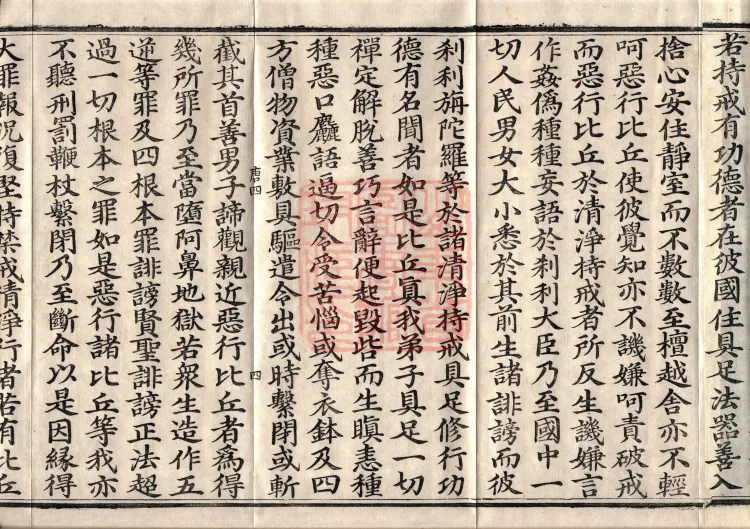 若持戒有功德者在彼國住具足法器善入
捨心安住靜室而不數數至檀越舍亦不輕
呵惡行比丘使彼覺知亦不譏嫌呵責破戒
而惡行比丘於清淨持戒者所反生譏嫌言
作姦僞種種妄語於刹利大臣乃至國中一
切人民男女大小悉於其前生諸誹謗而彼
刹利旃陀羅等於諸清淨持戒具足修行功
德有名聞者如是比丘真我弟子具足一切
禪定解脫善巧言辭便起毀呰而生瞋恚種
種惡口麤語逼切令受苦惱或奪衣鉢及四
方僧物資業敷具驅遣令出或時繫閉或斬
唐四
四
截其首善男子諦觀親近惡行比丘者爲得
幾所罪乃至當墮阿鼻地獄若衆生造作五
逆等罪及四根本罪誹謗賢聖誹謗正法超
過一切根本之罪如是惡行諸比丘等我亦
不聽刑罰鞭杖繫閉乃至斷命以是因緣得
大罪報況復堅持禁戒清淨行者若有比丘